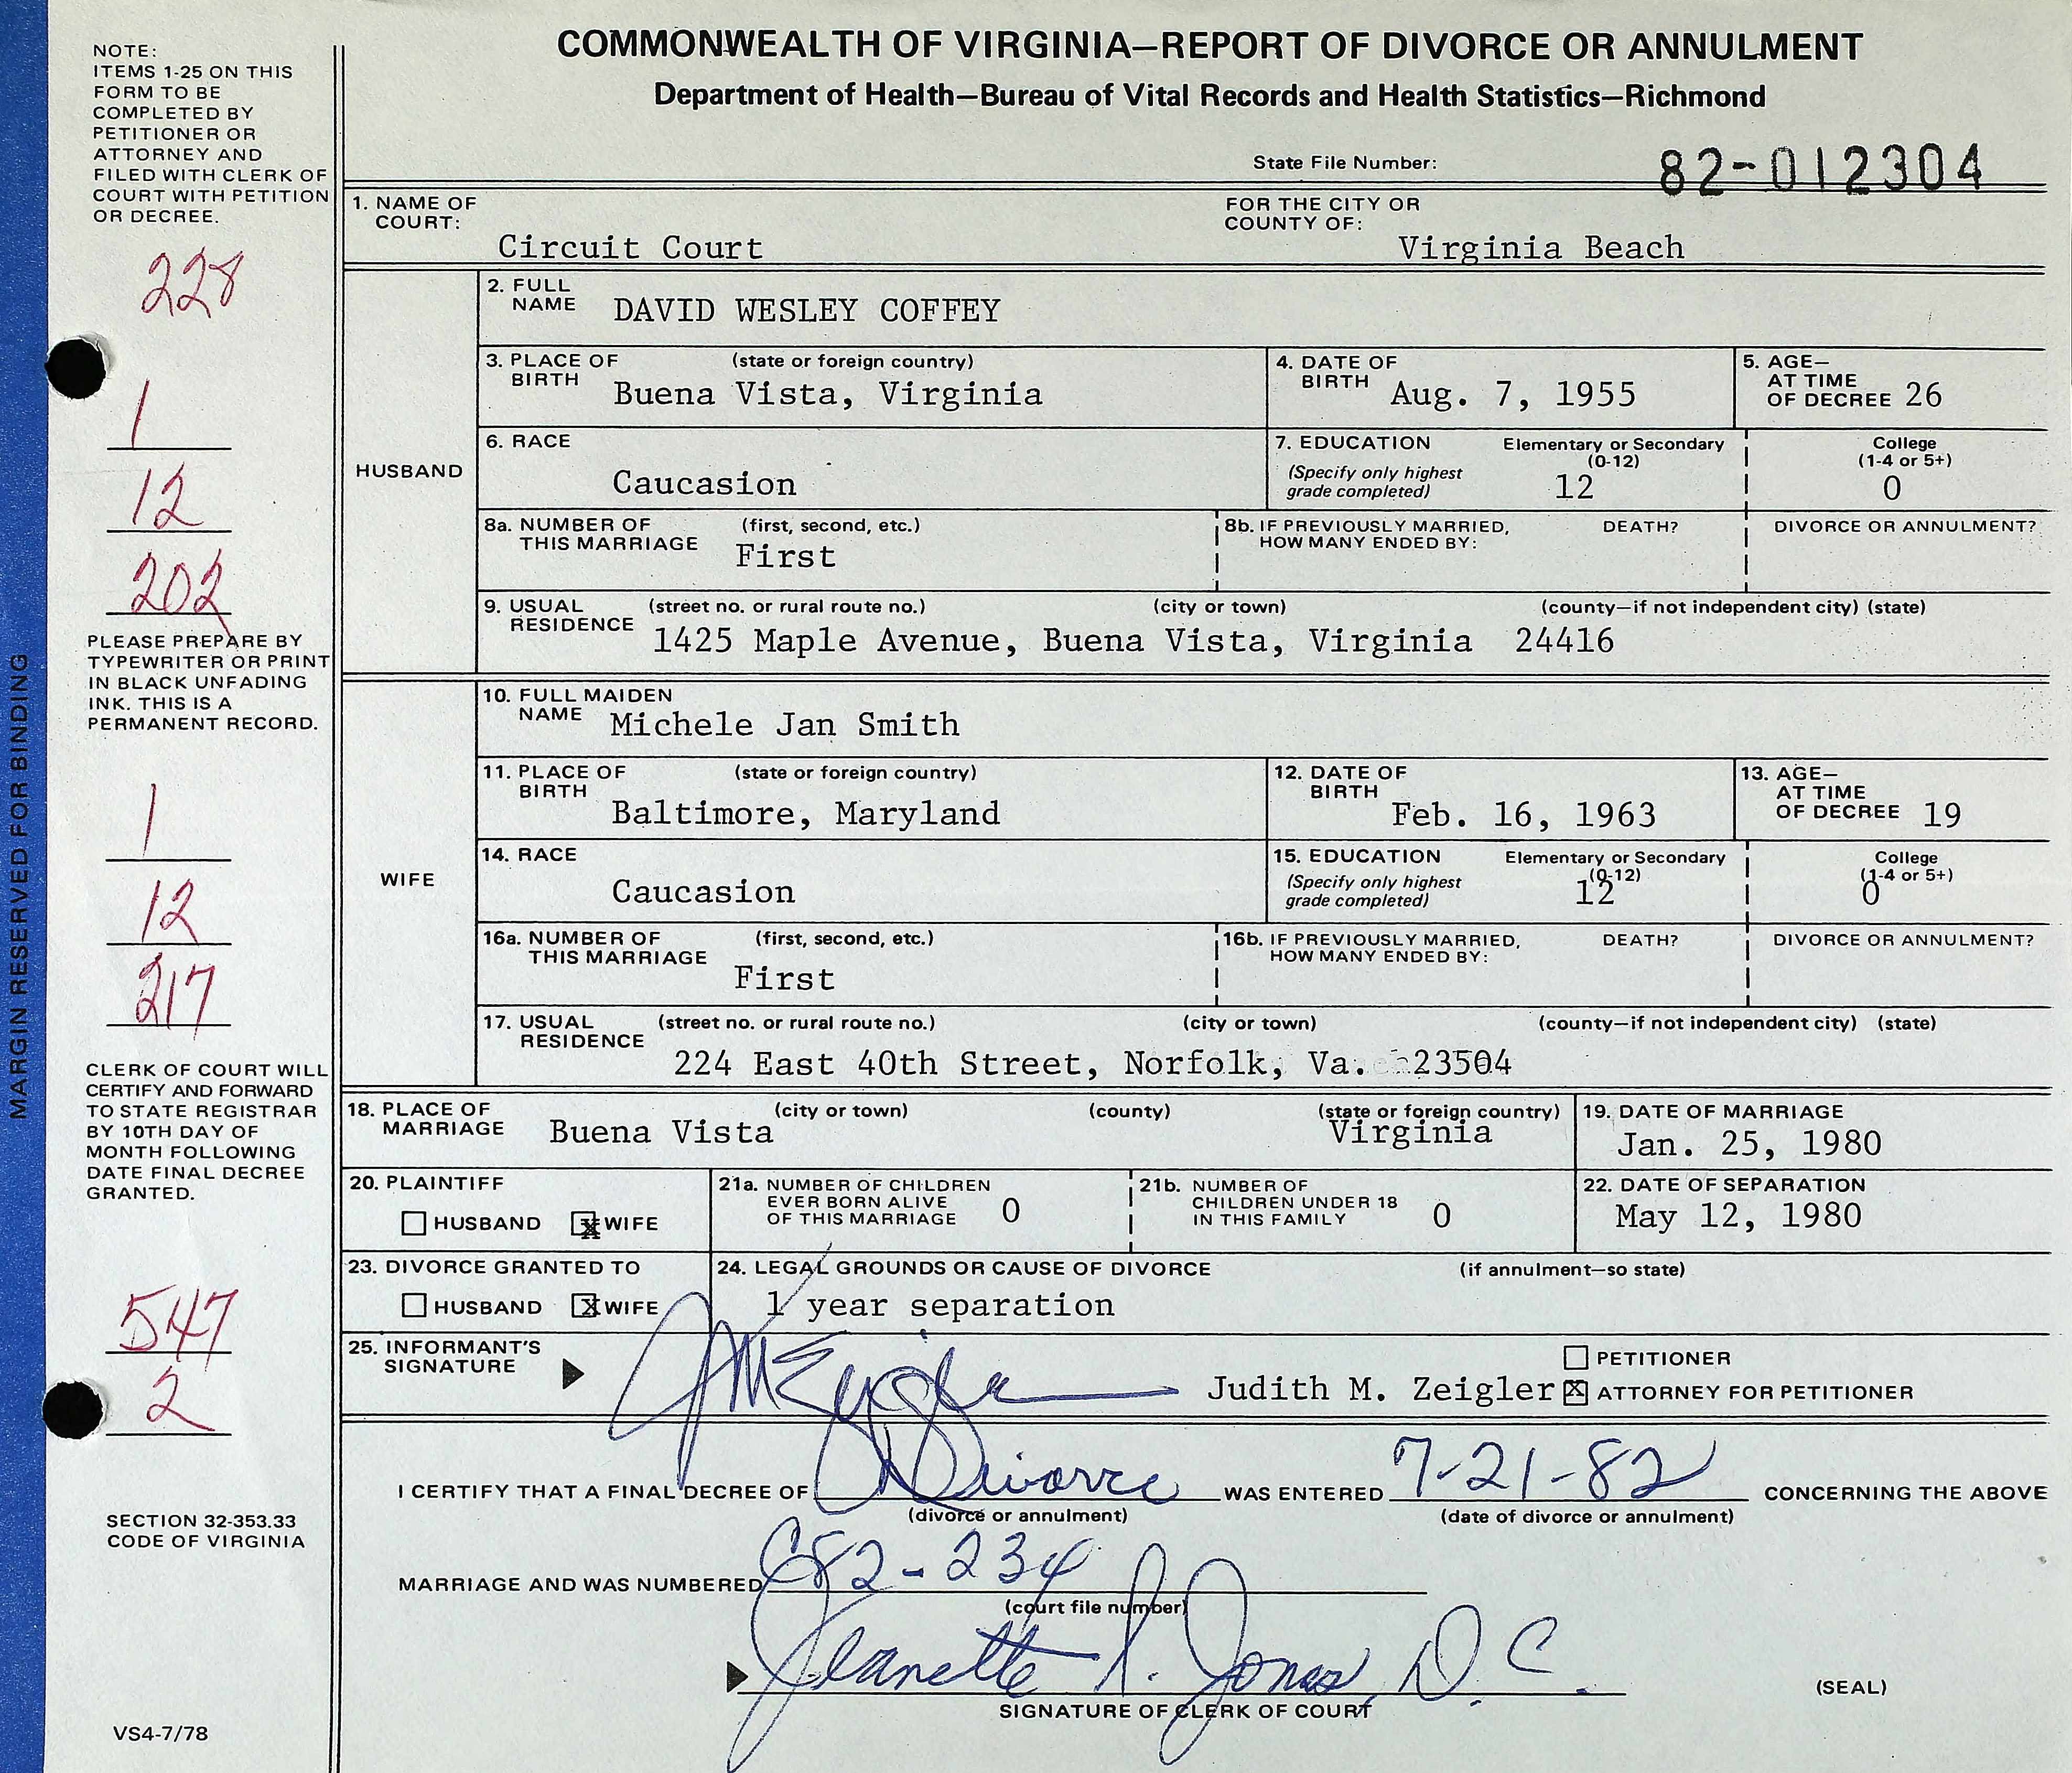 COMMONWEALTH OF VIRGINIA—REPORT OF DIVORCE OR ANNULMENT
Department of Health—Bureau of Vital Records and Health Statistics—Richmond
State File Number: 82-012304
NOTE:
ITEMS 1-25 ON THIS
FORM TO BE
COMPLETED BY
PETITIONER OR
ATTORNEY AND
FILED WITH CLERK OF
COURT WITH PETITION
OR DECREE.
228
1
12
202
PLEASE PREPARE BY
TYPEWRITER OR PRINT
IN BLACK UNFADING
INK. THIS IS A
PERMANENT RECORD.
1
12
217
CLERK OF COURT WILL
CERTIFY AND FORWARD
TO STATE REGISTRAR
BY 10TH DAY OF
MONTH FOLLOWING
DATE FINAL DECREE
GRANTED.
547
2
SECTION 32-353.33
CODE OF VIRGINIA
VS4-7/78
MARGIN RESERVED FOR BINDING
1. NAME OF COURT: Circuit Court
FOR THE CITY OR COUNTY OF: Virginia Beach
HUSBAND
2. FULL NAME DAVID WESLEY COFFEY
3. PLACE OF BIRTH (state or foreign country) Buena Vista, Virginia
4. DATE OF BIRTH Aug. 7, 1955
5. AGE— AT TIME OF DECREE 26
6. RACE Caucasion
7. EDUCATION (Specify only highest grade completed) Elementary or Secondary (0-12) 12 College (1-4 or 5+) 0
8a. NUMBER OF THIS MARRIAGE (first, second, etc.) First
8b. IF PREVIOUSLY MARRIED, HOW MANY ENDED BY: DEATH? DIVORCE OR ANNULMENT?
9. USUAL RESIDENCE (street no. or rural route no.) (city or town) (county—if not independent city) (state)
1425 Maple Avenue, Buena Vista, Virginia 24416
WIFE
10. FULL MAIDEN NAME Michele Jan Smith
11. PLACE OF BIRTH (state or foreign country) Baltimore, Maryland
12. DATE OF BIRTH Feb. 16, 1963
13. AGE— AT TIME OF DECREE 19
14. RACE Caucasion
15. EDUCATION (Specify only highest grade completed) Elementary or Secondary (0-12) 12 College (1-4 or 5+) 0
16a. NUMBER OF THIS MARRIAGE (first, second, etc.) First
16b. IF PREVIOUSLY MARRIED, HOW MANY ENDED BY: DEATH? DIVORCE OR ANNULMENT?
17. USUAL RESIDENCE (street no. or rural route no.) (city or town) (county—if not independent city) (state)
224 East 40th Street, Norfolk, Va. 23504
18. PLACE OF MARRIAGE (city or town) (county) (state or foreign country)
Buena Vista Virginia
19. DATE OF MARRIAGE Jan. 25, 1980
20. PLAINTIFF HUSBAND x WIFE
21a. NUMBER OF CHILDREN EVER BORN ALIVE OF THIS MARRIAGE 0
21b. NUMBER OF CHILDREN UNDER 18 IN THIS FAMILY 0
22. DATE OF SEPARATION May 12, 1980
23. DIVORCE GRANTED TO HUSBAND X WIFE
24. LEGAL GROUNDS OR CAUSE OF DIVORCE (if annulment—so state)
1 year separation
25. INFORMANT'S SIGNATURE JMZeigler Judith M. Zeigler
PETITIONER
X ATTORNEY FOR PETITIONER
I CERTIFY THAT A FINAL DECREE OF Divorce WAS ENTERED 7-21-82 CONCERNING THE ABOVE
(divorce or annulment) (date of divorce or annulment)
MARRIAGE AND WAS NUMBERED C82-234
(court file number)
Jeanette P. Jones, D.C.
SIGNATURE OF CLERK OF COURT
(SEAL)